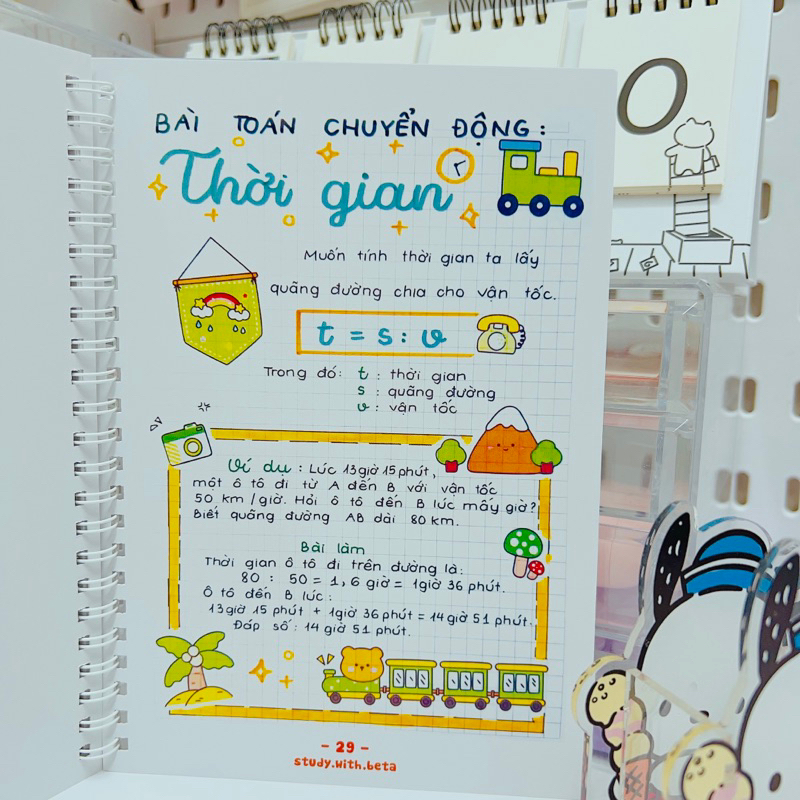 BÀI TOÁN CHUYỂN ĐỘNG:
Thời gian
Muốn tính thời gian ta lấy
quãng đường chia cho vận tốc.
t = s : v
Trong đó: t : thời gian
s : quãng đường
v : vận tốc
Ví dụ : Lúc 13giờ 15phút,
một ô tô đi từ A đến B với vận tốc
50 km/giờ. Hỏi ô tô đến B lúc mấy giờ?
Biết quãng đường AB dài 80km.
Bài làm
Thời gian ô tô đi trên đường là:
80 : 50 = 1,6 giờ = 1giờ 36 phút.
Ô tô đến B lúc:
13giờ 15 phút + 1giờ 36 phút = 14giờ 51 phút.
Đáp số: 14 giờ 51 phút.
- 29 -
study.with.beta
O